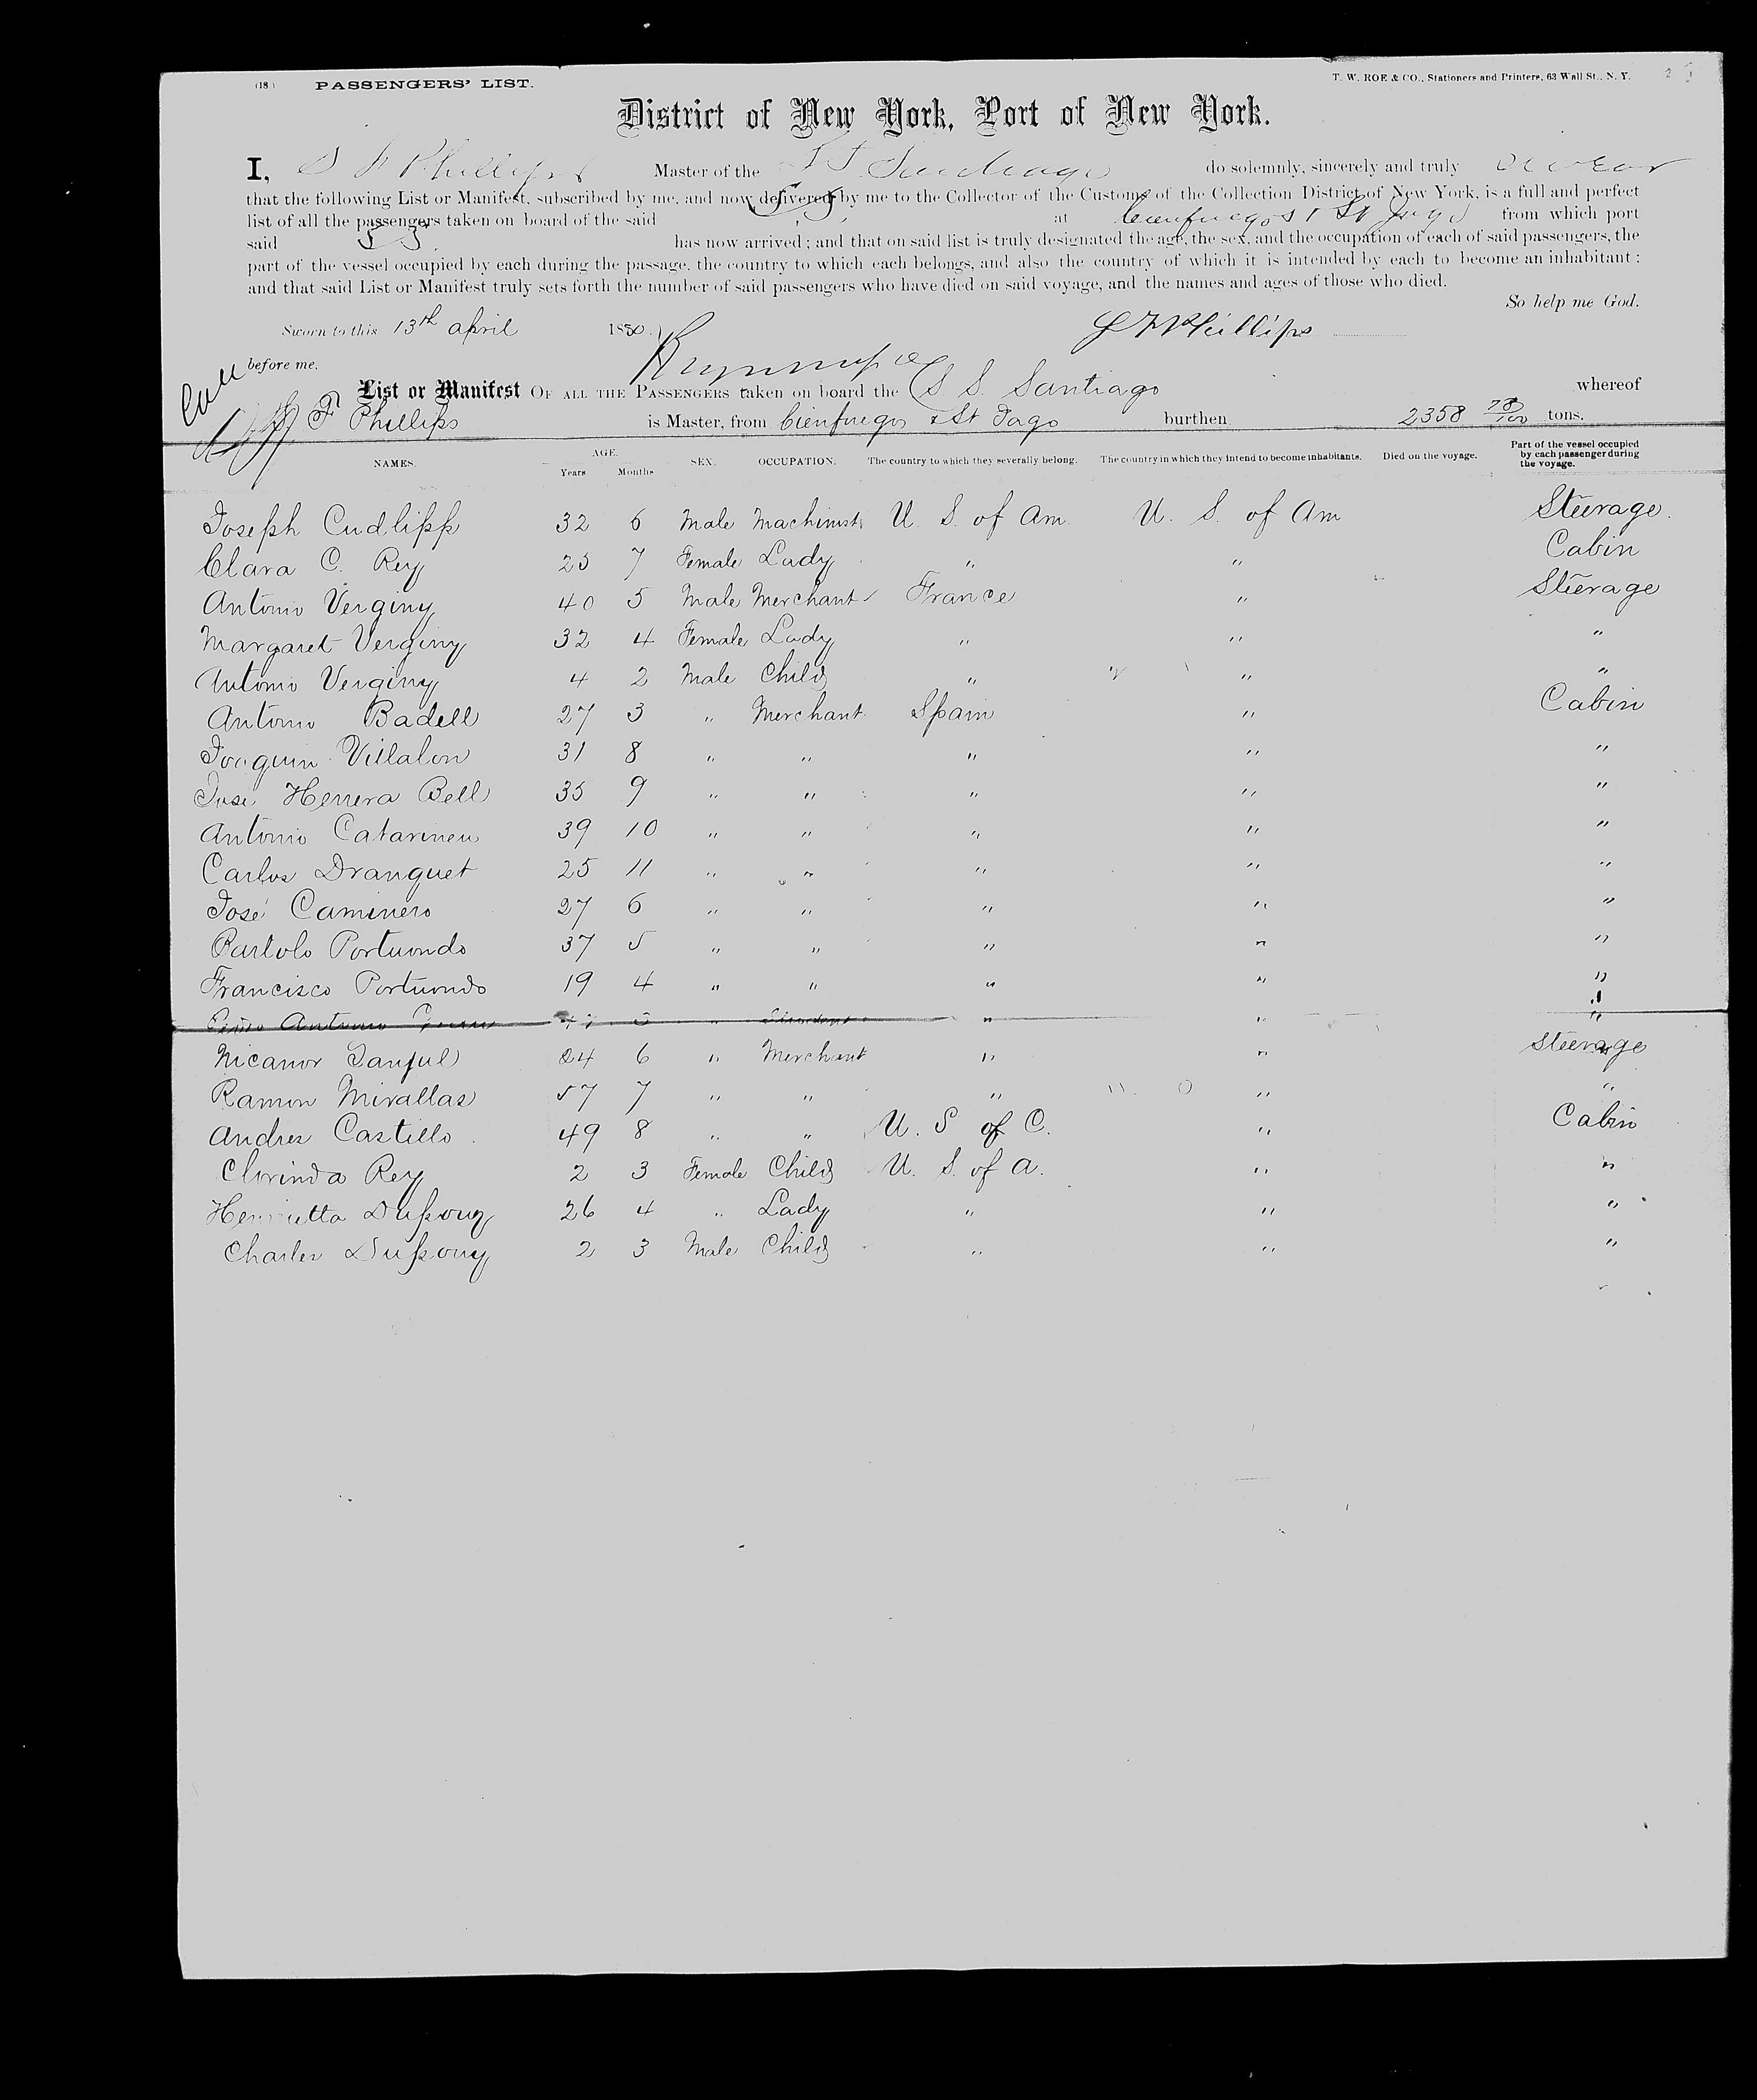 (18) PASSENGERS' LIST. T. W. ROE & CO., Stationers and Printers, 63 Wall St., N. Y.
District of New York, Port of New York.
I, S F Phillips Master of the S S Santiago do solemnly, sincerely and truly swear
that the following List or Manifest, subscribed by me, and now delivered by me to the Collector of the Customs of the Collection District of New York, is a full and perfect
list of all the passengers taken on board of the said SS at Cienfuegos & St Jago from which port
said SS has now arrived; and that on said list is truly designated the age, the sex, and the occupation of each of said passengers, the
part of the vessel occupied by each during the passage, the country to which each belongs, and also the country of which it is intended by each to become an inhabitant;
and that said List or Manifest truly sets forth the number of said passengers who have died on said voyage, and the names and ages of those who died.
So help me God.
Sworn to this 13th april 1880. S F Phillips
before me.
List or Manifest OF ALL THE PASSENGERS taken on board the S S. Santiago whereof
F Phillips is Master, from Cienfuegos & St Jago burthen 2358 78/100 tons.
NAMES. AGE. Years Months SEX. OCCUPATION. The country to which they severally belong. The country in which they intend to become inhabitants. Died on the voyage. Part of the vessel occupied by each passenger during the voyage.
Joseph Cudlipp 32 6 Male Machinist U. S. of Am. U. S. of Am Steerage.
Clara C. Rey 25 7 Female Lady " " Cabin
Antonio Verginy 40 5 Male Merchant France " Steerage
Margaret Verginy 32 4 Female Lady " " "
Antonio Verginy 4 2 Male Child " " "
Antonio Badell 27 3 " Merchant Spain " Cabin
Joaquin Villalon 31 8 " " " " "
José Herrera Bell 35 9 " " " " "
Antonio Catarineu 39 10 " " " " "
Carlos Dranguet 25 11 " " " " "
José Caminero 27 6 " " " " "
Bartolo Portuondo 37 5 " " " " "
Francisco Portuondo 19 4 " " " " "
Antonio " " " "
Nicanor Sanjul 24 6 " Merchant " " Steerage
Ramon Mirallas 57 7 " " " " "
Andres Castillo. 49 8 " " U. S of C. " Cabin
Clorinda Rey 2 3 Female Child U. S. of A. " "
Henrietta Dupouy 26 4 " Lady " " "
Charles Dupouy 2 3 Male Child " " "